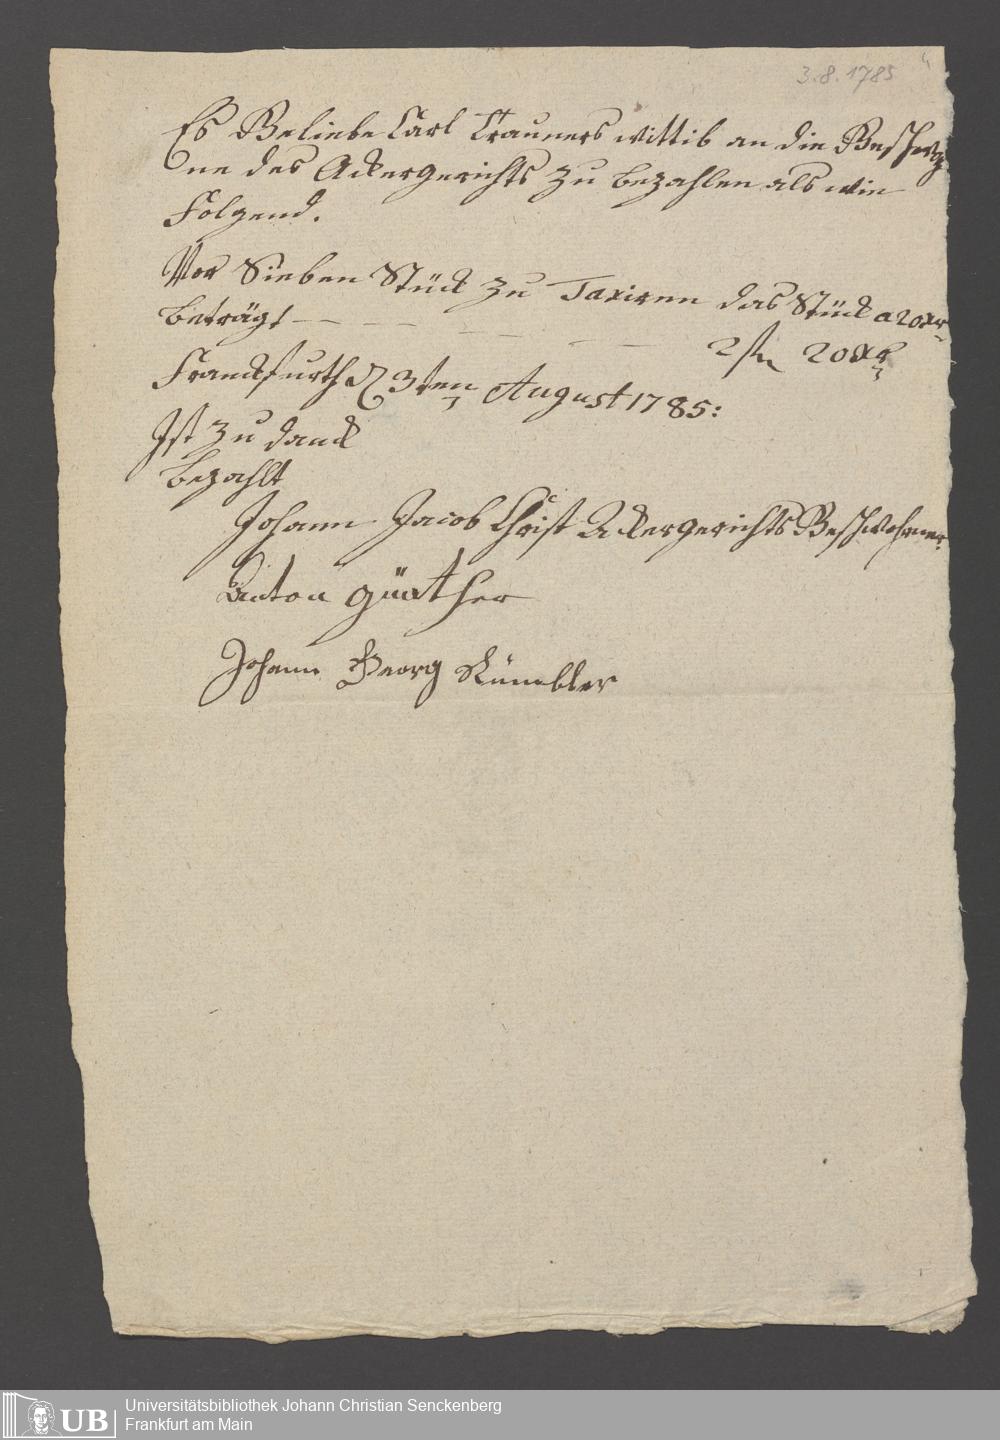 3.8.1785
Es Beliebe Carl Trauners wittib an die Beschwo
ne des Ackergerichts zu bezahlen als wie
Folgend.
Vor Sieben Stück zu Taxiren das Stück a 20xr
beträgt — — — — — — 2 fl 20xr
Franckfurth d 3ten August 1785:
Ist zu danck
bezahlt
Johann Jacob Christ Ackergerichts Beschwohrner
Anton günther
Johann Georg Kümbler
UB
Universitätsbibliothek Johann Christian Senckenberg
Frankfurt am Main